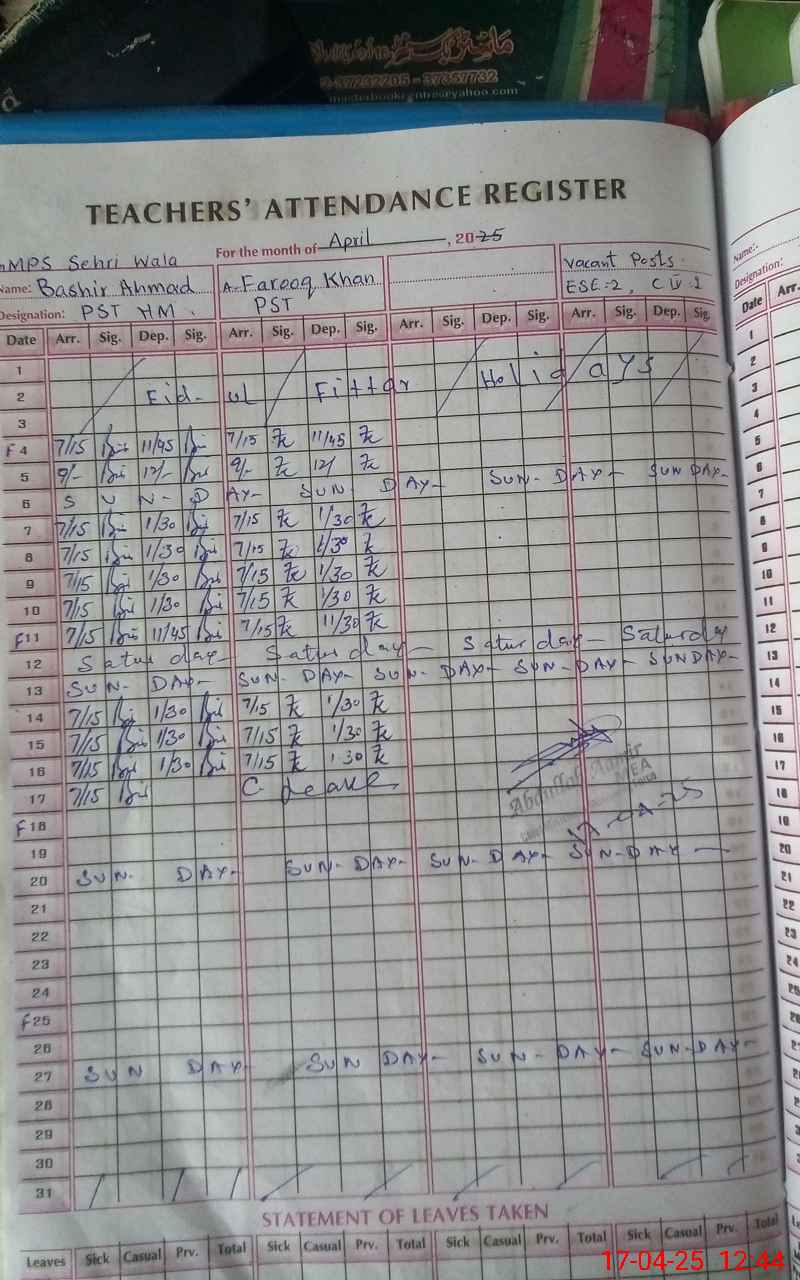 ماسٹر بک سنٹر
2-37232205 - 37357732
masterbookcentre@yahoo.com
TEACHERS' ATTENDANCE REGISTER
For the month of April, 2025
MPS Sehri Wala
Name: Bashir Ahmad A. Farooq Khan Vacant Posts
Designation: PST HM. PST ESE=2, C IV 1
Date Arr. Sig. Dep. Sig. Arr. Sig. Dep. Sig. Arr. Sig. Dep. Sig. Arr. Sig. Dep. Sig.
1
2 Eid-ul Fittar Holidays
3
F 4 7/15 11/45 7/15 11/45
5 9/- 12/- 9/- 12/
6 SUN-DAY- SUN-DAY- SUN-DAY- SUNDAY-
7 7/15 1/30 7/15 1/30
8 7/15 1/30 7/15 1/30
9 7/15 1/30 7/15 1/30
10 7/15 1/30 7/15 1/30
F 11 7/15 11/45 7/15 11/30
12 Saturday- Saturday- Saturday- Saturday
13 SUN-DAY- SUN-DAY- SUN-DAY- SUN-DAY- SUNDAY-
14 7/15 1/30 7/15 1/30
15 7/15 1/30 7/15 1/30
16 7/15 1/30 7/15 1 30
17 7/15 C. Leave
Abdullah Aamir
MEA
F 18
19
20 SUN-DAY- SUN-DAY- SUN-DAY- SUN-DAY
21
22
23
24
F 25
26
27 SUN DAY- SUN DAY- SUN-DAY- SUN-DAY-
28
29
30
31
STATEMENT OF LEAVES TAKEN
Leaves Sick Casual Prv. Total Sick Casual Prv. Total Sick Casual Prv. Total Sick Casual Prv. Total
Name:-
Designation:
Date Arr.
1
2
3
4
5
6
7
8
9
10
11
12
13
14
15
16
17
18
19
20
21
22
23
24
17-04-25 12:44